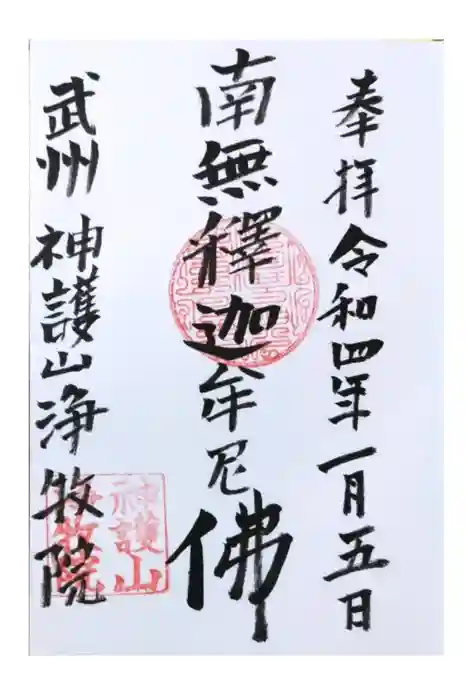 奉拝 令和四年一月五日
南無釋迦牟尼佛
武州 神護山浄牧院
神護山
浄牧院